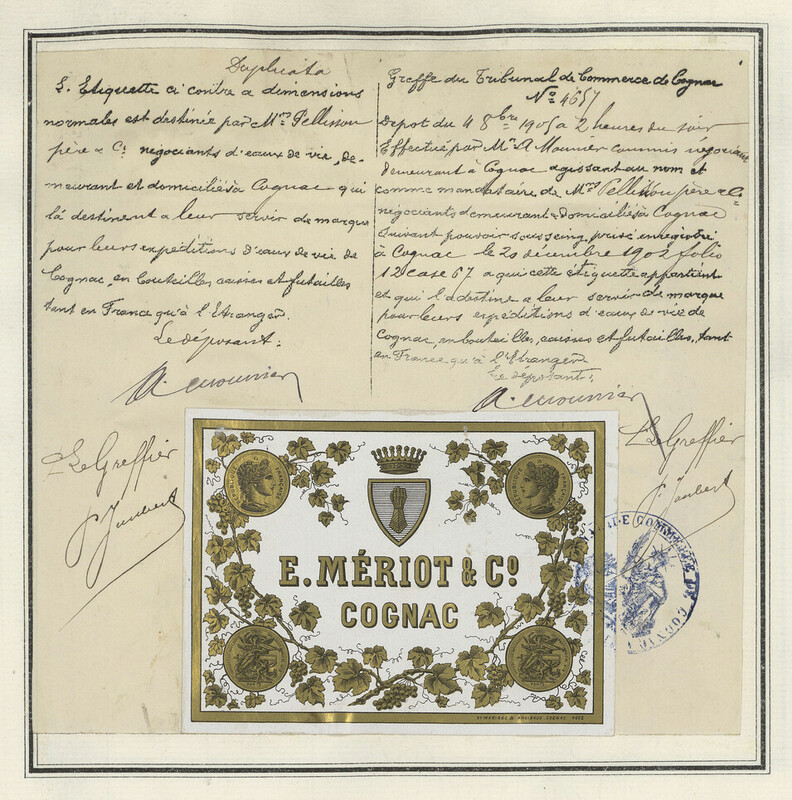 Duplicata
L. Etiquette ci contre a dimensions
normales est destinée par Mrs Pellisson
père & Co negociants d'eaux de vie, de-
meurant et domiciliés à Cognac qui
la destinent a leur servir de marque
pour leurs expéditions d'eaux de vie de
Cognac, en bouteilles caisses et futailles
tant en France qu'à l'Etranger.
Le déposant:
A. Mounier
Le Greffier
P. Jaubert
Greffe du Tribunal de Commerce de Cognac
No 4657
Depot du 4 8bre 1905 a 2 heures du soir
Effectué par Mr A Mounier commis négociant
demeurant à Cognac agissant au nom et
comme mandataire de Mrs Pellisson père & Co
negociants demeurant & domiciliés à Cognac
suivant pouvoir sous seing privé enregistré
à Cognac le 20 décembre 1902 folio
12 case 67 a qui cette étiquette appartient
et qui l'a destine a leur servir de marque
pour leurs expéditions d'eaux de vie de
Cognac, en bouteilles, caisses et futailles, tant
en France qu'à l'Etranger
Le déposant:
A. Mounier
Le Greffier
P. Jaubert
E. MÉRIOT & Co
COGNAC
COMMERCE DE COGNAC